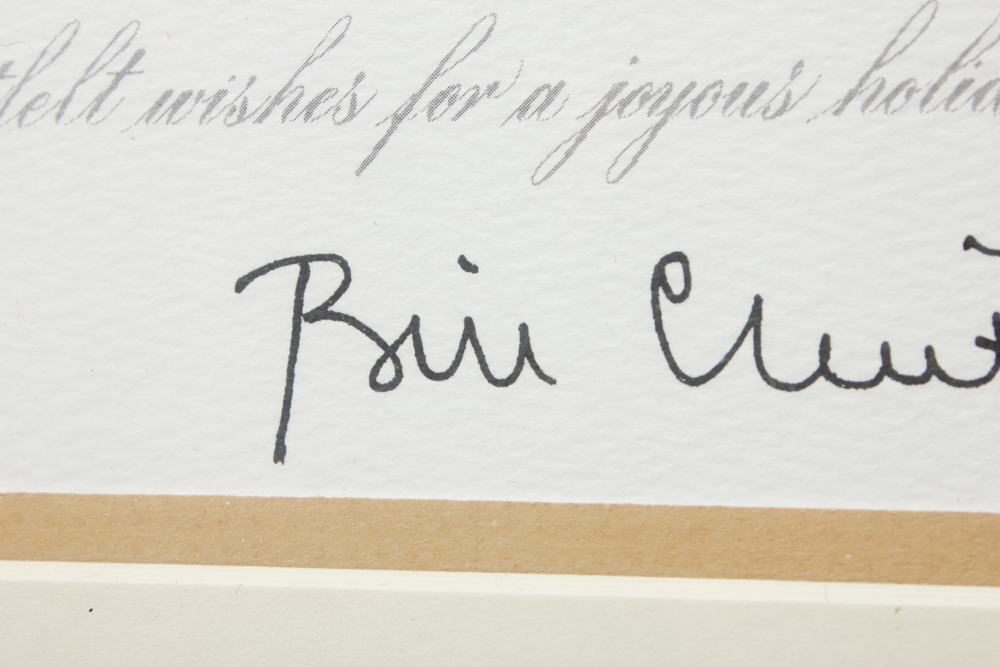 tfelt wishes for a joyous holid
Bill Clint